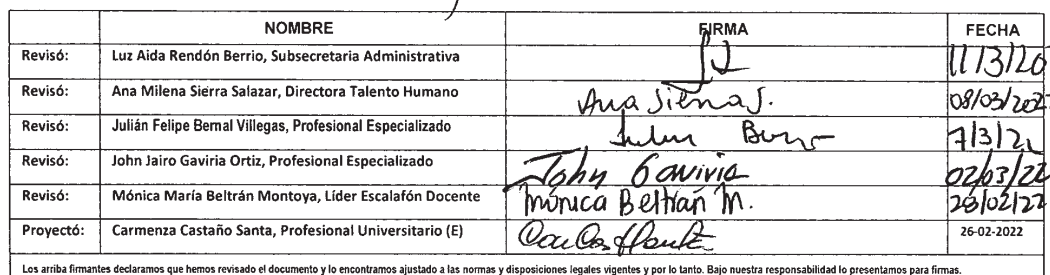 NOMBRE FIRMA FECHA
Revisó: Luz Aida Rendón Berrio, Subsecretaria Administrativa 11/3/20
Revisó: Ana Milena Sierra Salazar, Directora Talento Humano Ana Sierra S. 08/03/202
Revisó: Julián Felipe Bernal Villegas, Profesional Especializado 7/3/22
Revisó: John Jairo Gaviria Ortiz, Profesional Especializado John Gaviria 02/03/22
Revisó: Mónica María Beltrán Montoya, Líder Escalafón Docente Mónica Beltrán M. 28/02/22
Proyectó: Carmenza Castaño Santa, Profesional Universitario (E) 26-02-2022
Los arriba firmantes declaramos que hemos revisado el documento y lo encontramos ajustado a las normas y disposiciones legales vigentes y por lo tanto. Bajo nuestra responsabilidad lo presentamos para firmas.